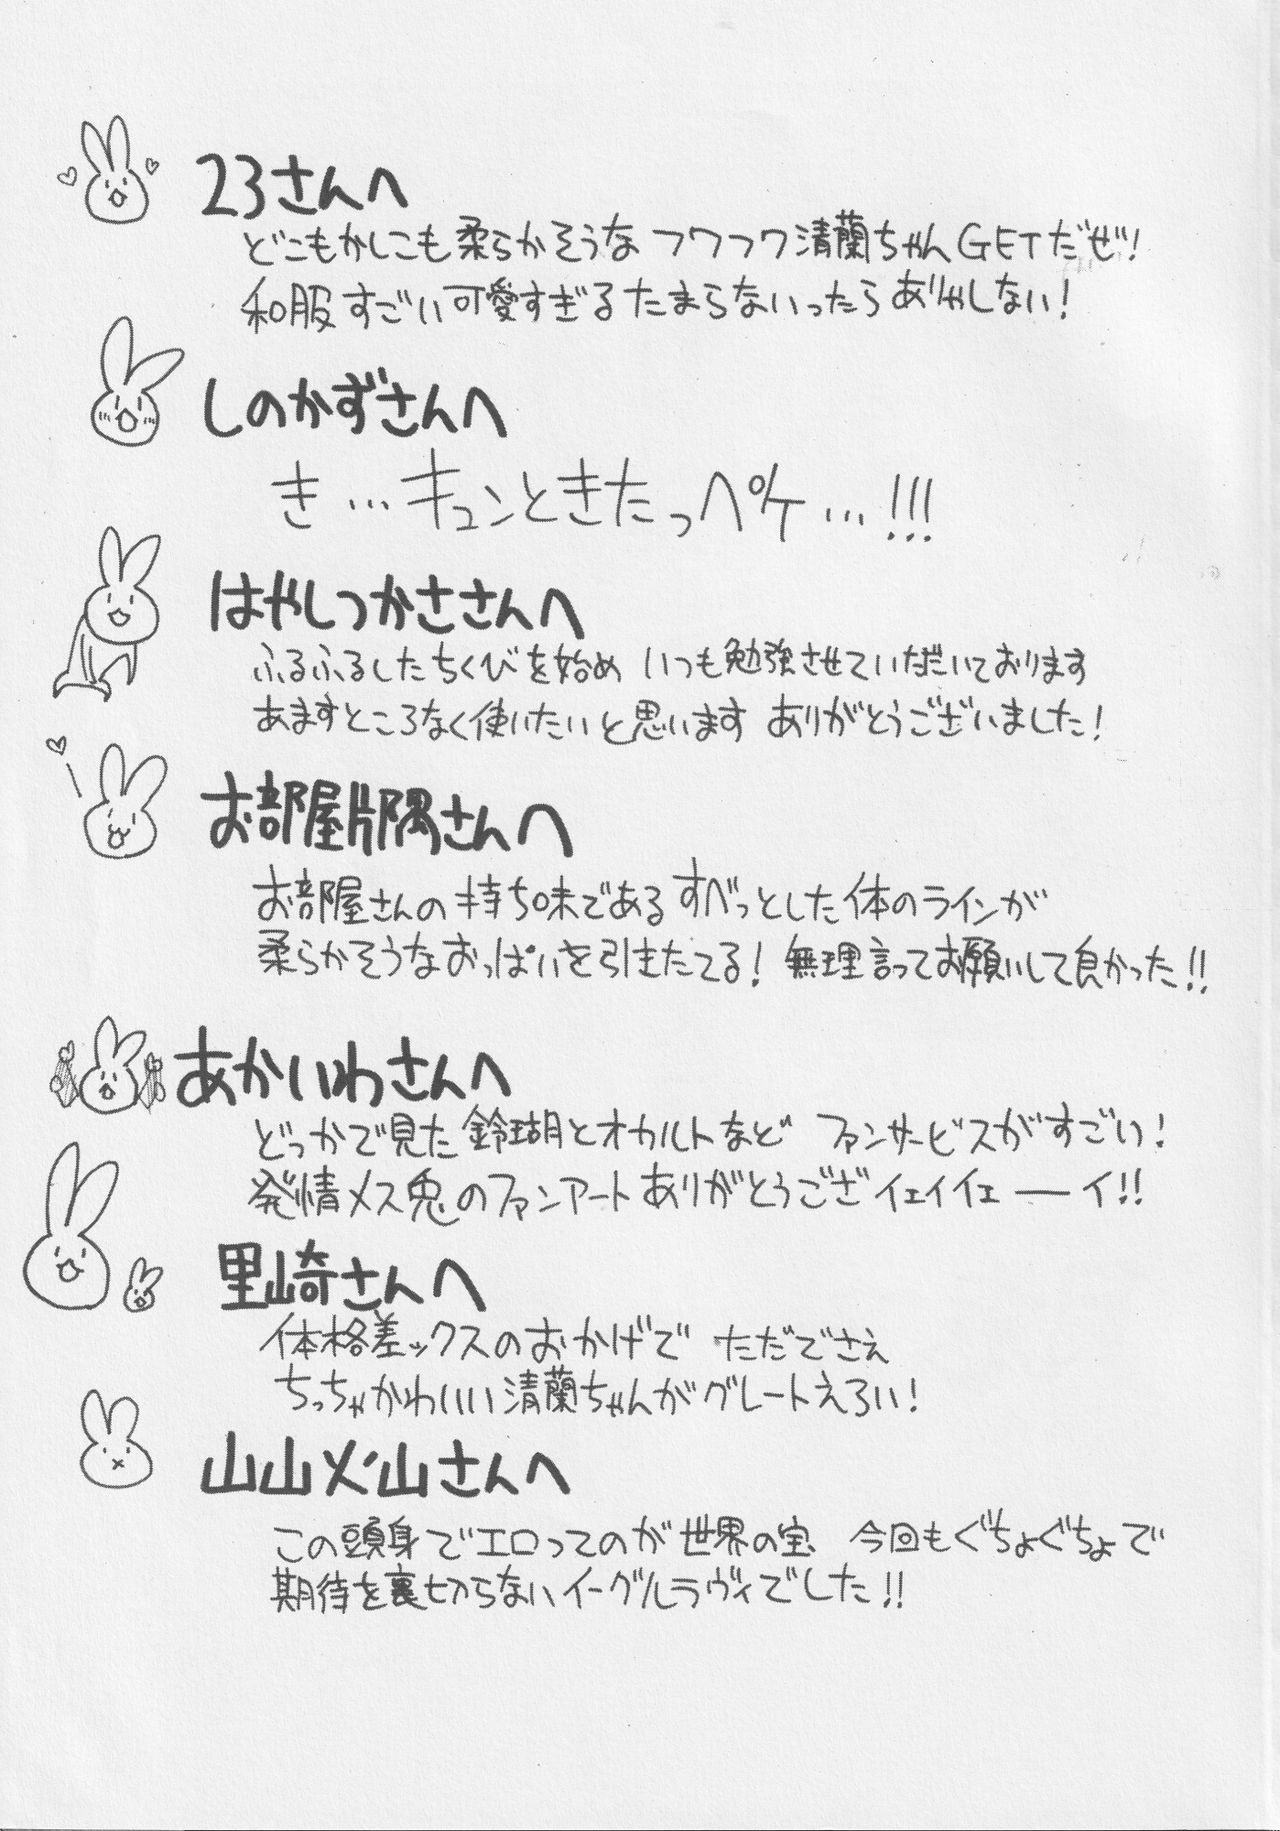 23さんへ
どこもかしこも柔らかそうな フワフワ清蘭ちゃんGETだぜ!
和服すごい可愛すぎるたまらないったらありゃしない!
しのかずさんへ
き…キュンときたっペケ…!!!
はやしつかささんへ
ふるふるしたちくびを始め いつも勉強させていただいております
あますところなく使いたいと思います ありがとうございました!
お部屋片隅さんへ
お部屋さんの持ち味であるすべっとした体のラインが
柔らかそうなおっぱいを引きたてる! 無理言ってお願いして良かった!!
あかいわさんへ
どっかで見た鈴瑚とオカルトなど ファンサービスがすごい!
発情メス兎のファンアートありがとうござイェイイェーイ!!
里崎さんへ
体格差ックスのおかげで ただでさえ
ちっちゃかわいい清蘭ちゃんがグレートえろい!
山山火山さんへ
この頭身でエロってのが世界の宝 今回もぐちょぐちょで
期待を裏切らないイーグルラヴィでした!!